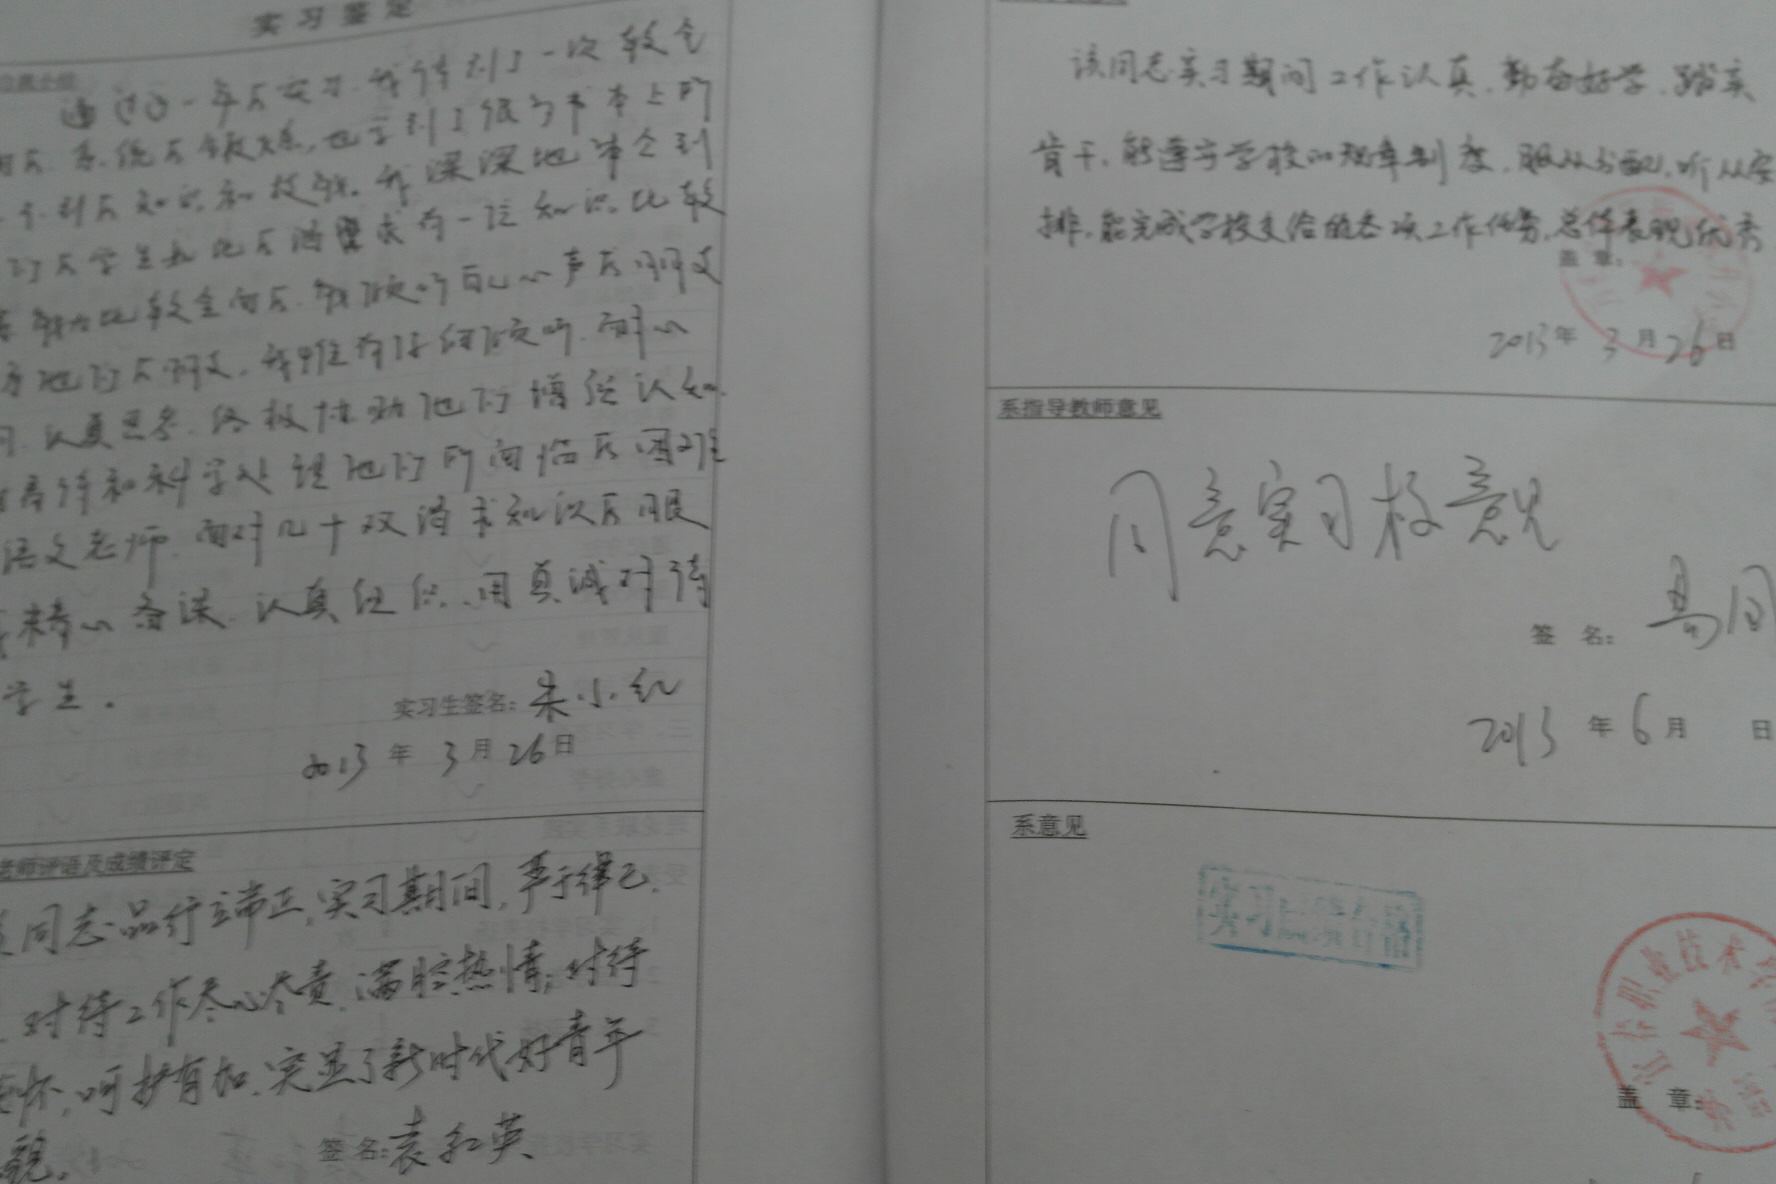 实习鉴定
通过这一年的实习.我得到了一次较全
面的.系统的锻炼,也学到了很多书本上的
学不到的知识和技能.我深深地体会到
们的学生如此的渴望求有一位知识比较
能力比较全面的.我倾听自己心声的朋友
他们的朋友.我唯有仔细倾听.耐心
认真思考.积极帮助他们增强认知.
看待和科学处理他们所面临的困难
语文老师.面对几十双渴求知识的眼
精心备课.认真组织.用真诚对待
学生.
实习生签名:朱小红
2013年3月26日
老师评语及成绩评定
同志品行端正,实习期间,严于律己.
对待工作尽心尽责.满腔热情;对待
怀,呵护有加.突显了新时代好青年
貌.
签名:袁红英
该同志实习期间工作认真.勤奋好学.踏实
肯干.能遵守学校的规章制度.服从分配.听从安
排.能完成学校交给的各项工作任务.总体表现优秀
盖章:
2013年3月26日
系指导教师意见
同意实习校意见
签名:
2013年6月 日
系意见
实习成绩合格
职业技术学
盖章: